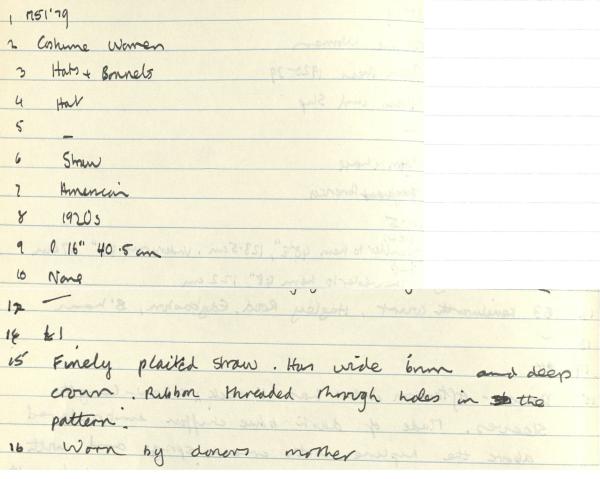 1 M51'79
2 Costume Women
3 Hats + Bonnets
4 Hat
5 –
6 Straw
7 American
8 1920s
9 D. 16" 40.5 cm
10 None
12 –
14 1
15 Finely plaited straw. Has wide brim and deep
crown. Ribbon threaded through holes in the
pattern.
16 Worn by donors mother